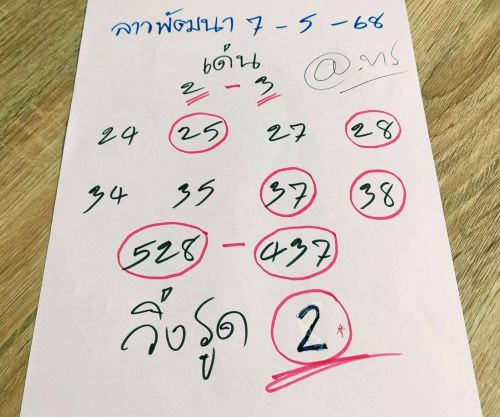 ลาวพัฒนา 7-5-68
เด่น
2-3
24 25 27 28
34 35 37 38
528-437
วิ่งรูด 2